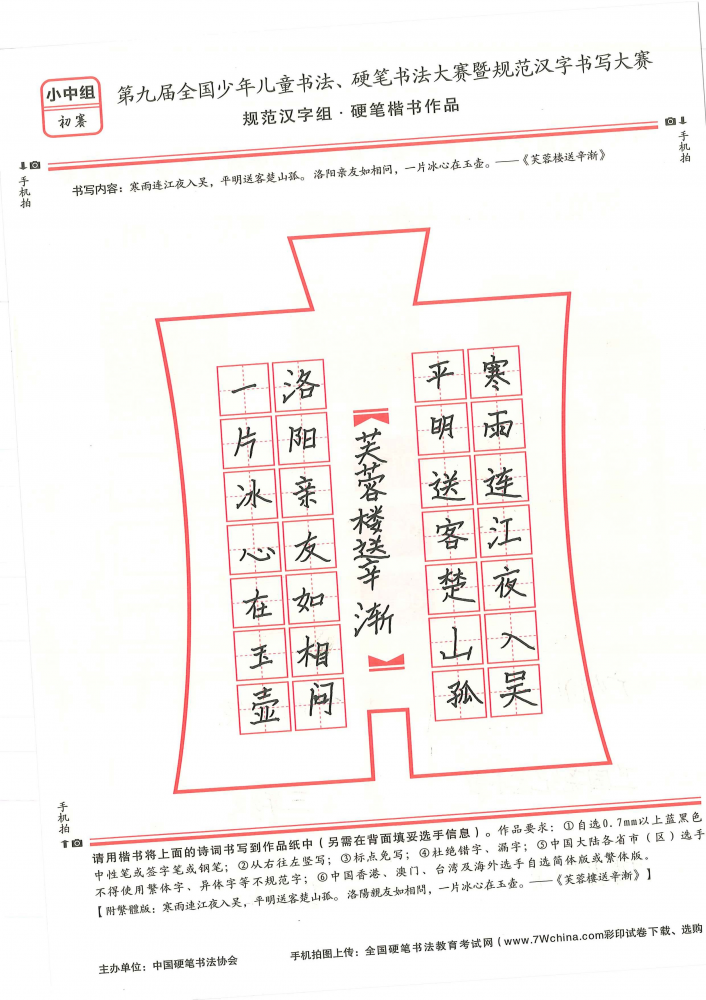 小中组
初赛
第九届全国少年儿童书法、硬笔书法大赛暨规范汉字书写大赛
规范汉字组·硬笔楷书作品
手机拍
手机拍
书写内容：寒雨连江夜入吴，平明送客楚山孤。洛阳亲友如相问，一片冰心在玉壶。——《芙蓉楼送辛渐》
寒雨连江夜入吴
平明送客楚山孤
芙蓉楼送辛渐
洛阳亲友如相问
一片冰心在玉壶
手机拍
请用楷书将上面的诗词书写到作品纸中（另需在背面填妥选手信息）。作品要求：①自选0.7mm以上蓝黑色
中性笔或签字笔或钢笔；②从右往左竖写；③标点免写；④杜绝错字、漏字；⑤中国大陆各省市（区）选手
不得使用繁体字、异体字等不规范字；⑥中国香港、澳门、台湾及海外选手自选简体版或繁体版。
【附繁體版：寒雨連江夜入吴，平明送客楚山孤。洛陽親友如相問，一片冰心在玉壶。——《芙蓉楼送辛渐》】
主办单位：中国硬笔书法协会
手机拍图上传：全国硬笔书法教育考试网（www.7Wchina.com彩印试卷下载、选购